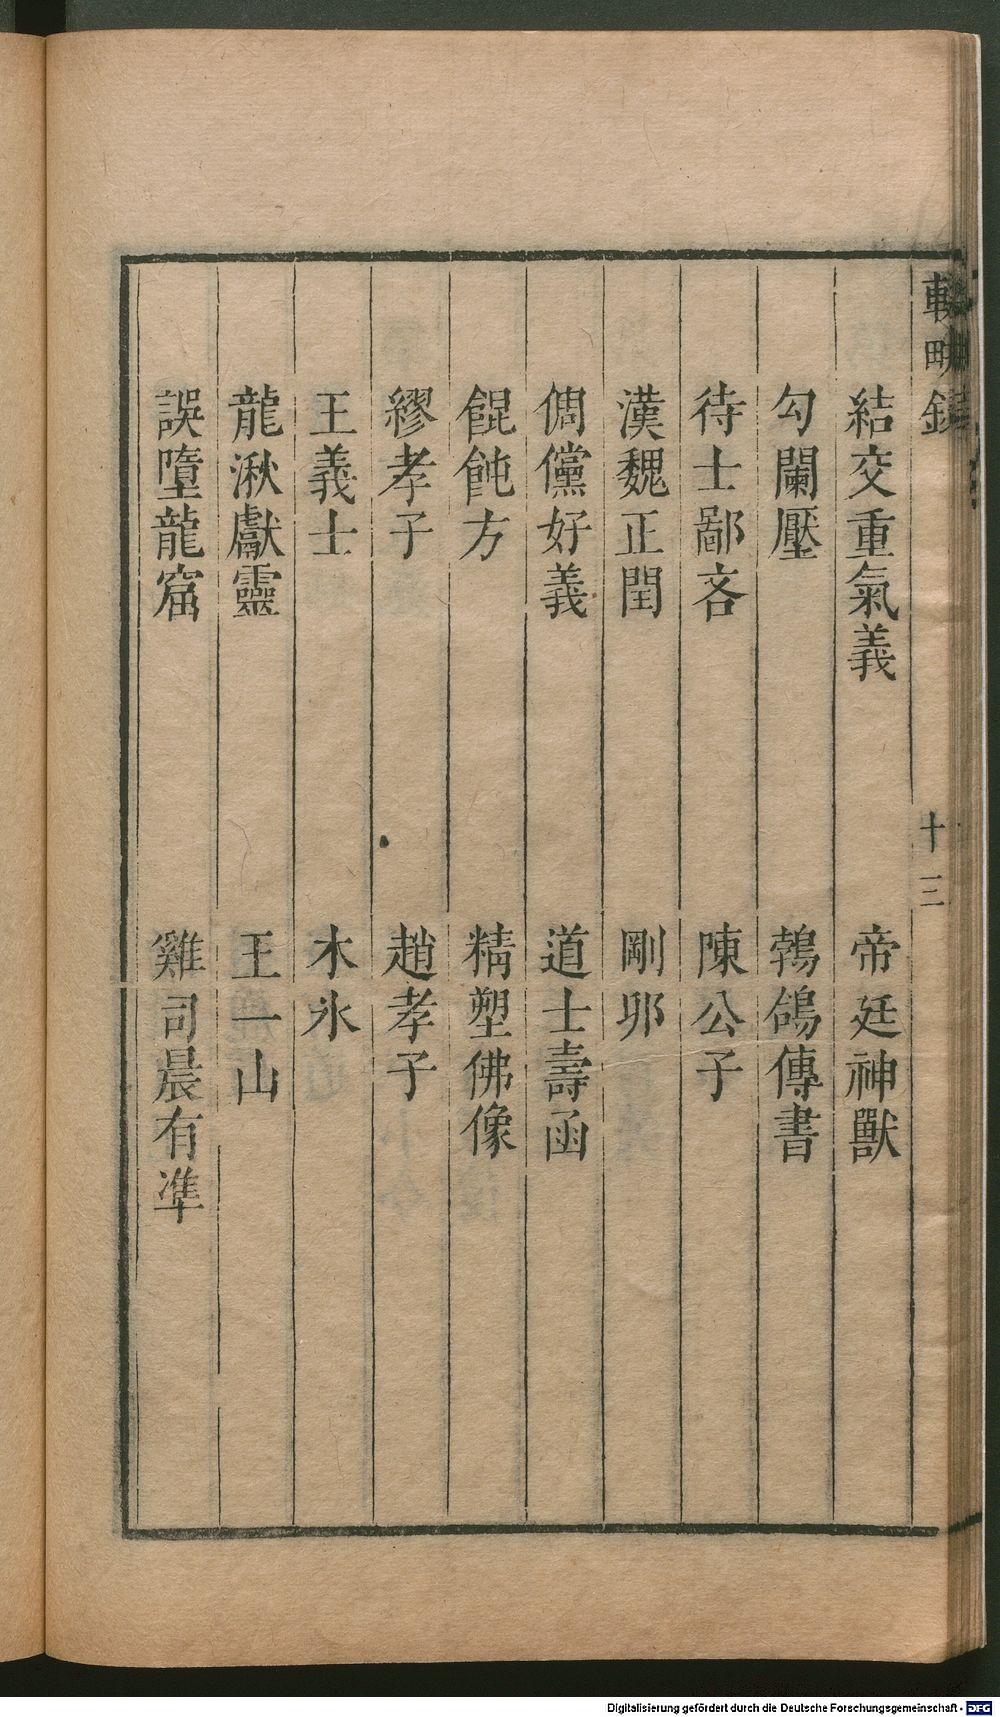 輟畊錄 十三
結交重氣義 帝廷神獸
勾闌壓 鵓鴿傳書
待士鄙吝 陳公子
漢魏正閏 剛卯
倜儻好義 道士壽函
餛飩方 精塑佛像
繆孝子 趙孝子
王義士 木氷
龍湫獻靈 王一山
誤墮龍窟 雞司晨有準
Digitalisierung gefördert durch die Deutsche Forschungsgemeinschaft - DFG